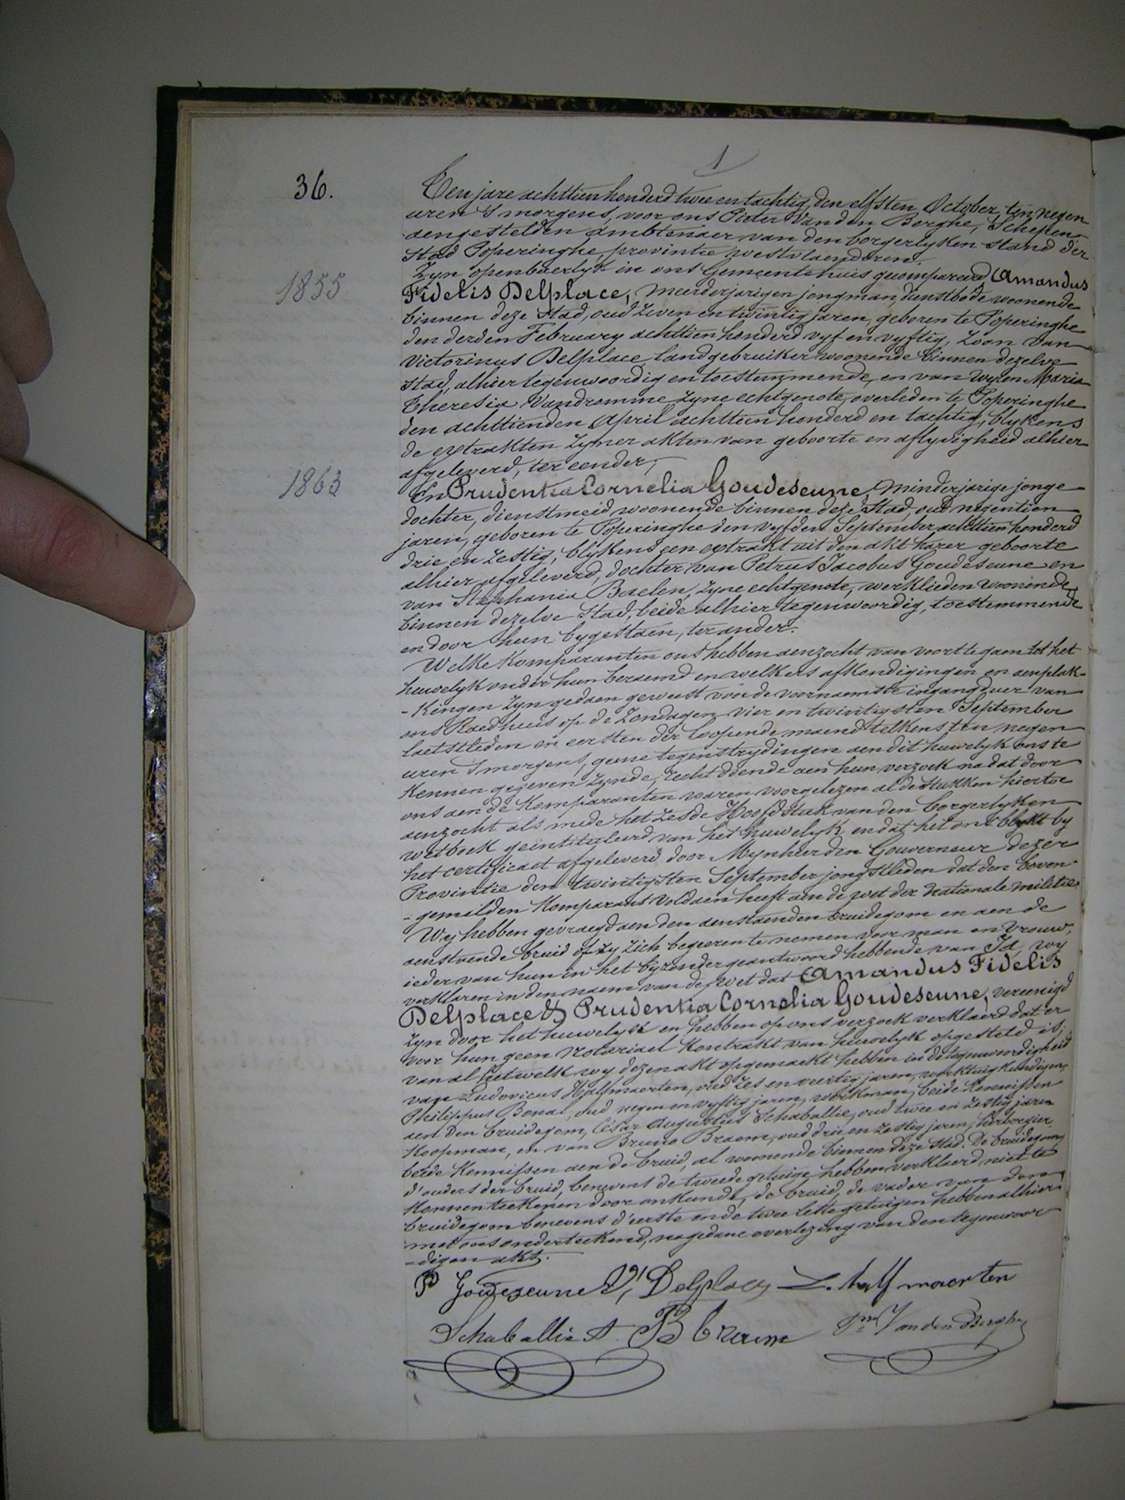 1
36.
Ten jare achttienhonderd twee en tachtig, den elfsten October, ten negen
uren 's morgens, voor ons Pieter Vanden Berghe, Schepen
aengestelden ambtenaer van den borgerlyken stand der
Stad Poperinghe, provintie westvlaenderen.
Zyn openbaerlyk in ons Gemeentehuis gecompareerd, Amandus
1855
Fidelis Delplace, meerderjarigen jongman, dienstbode woonende
binnen deze Stad, oud zeven en twintig jaren, geboren te Poperinghe
den derden February achttien honderd vyf en vyftig, zoon van
Victorinus Delplace landgebruiker woonende binnen dezelve
stad, alhier tegenwoordig en toestemmende, en van wylen Maria
Theresia Vandromme zyne echtgenote, overleden te Poperinghe
den achttienden April achttien honderd en tachtig, blykens
de extrakten zyner akten van geboorte en aflyvigheid alhier
afgeleverd, ter eender,
1863
En Prudentia Cornelia Goudeseune, minderjarige jonge
dochter, dienstmeid, woonende binnen deze Stad, oud negentien
jaren, geboren te Poperinghe den vyfden September achttien honderd
drie en zestig, blykens een extrakt uit den akt harer geboorte
alhier afgeleverd, dochter van Petrus Jacobus Goudeseune en
van Stephania Baelen, zyne echtgenote, werklieden woonende
binnen dezelve Stad, beide alhier tegenwoordig, toestemmende
en door hun bygestaen, ter ander.
Welke Komparanten ons hebben aenzocht van voort te gaen tot het
huwelyk onder hun beraemd en welkers afkondigingen en aenplak-
-kingen zyn gedaen geweest voor de voornaemste ingangdeur van
ons Raedhuis op de zondagen vier en twintigsten September
laetstleden en eersten der loopende maend telkens ten negen
uren 's morgens, geene tegenstrydingen aen dit huwelyk ons te
kennen gegeven zynde, recht doende aen hun verzoek na dat door
ons aen de Komparanten waren voorgelezen al de stukken hiertoe
aenzocht als mede het zesde Hoofdstuk van den borgerlyken
wetboek geintituleerd van het huwelyk, en dat het ons blykt by
het certificaet afgeleverd door Mynheer den Gouverneur dezer
Provintie den twintigsten September jongstleden dat den boven-
-gemelden Komparant voldaen heeft aen de wet der nationale militie.
Wy hebben gevraegd aen den aenstaenden bruidegom en aen de
aenstaende bruid of zy zich begeeren te nemen voor man en vrouw,
ieder van hun in het byzonder geantwoord hebbende van Ja, wy
verklaren in den naem van de wet dat Amandus Fidelis
Delplace & Prudentia Cornelia Goudeseune, vereenigd
zyn door het huwelyk en hebben op ons verzoek verklaerd dat er
voor hun geen notariael Kontrakt van huwelyk opgesteld is,
van al hetwelk wy dezen akt opgemaekt hebben in de tegenwoordigheid
van Ludovicus Halfmaerten, oud zes en veertig jaren,
Philippus Bonai, oud negen en vyftig jaren, werkman, beide Kennissen
aen den bruidegom, Cesar Augustus Schaballie, oud twee en zestig jaren
Koopman, en van Bruno Braem, oud drie en zestig jaren, herbergier
beide Kennissen aen de bruid, al woonende binnen deze Stad. De bruidegom,
d'ouders der bruid, benevens de tweede getuige hebben verklaerd niet te
kunnen teekenen door onkunde, de bruid, de vader van den
bruidegom benevens d'eerste en de twee laetste getuigen hebben alhier
met ons onderteekend, na gedane overlezing van den tegenwoor-
-digen akt.
P Goudeseune V, Delplace L. halfmaerten
Schaballie A. B Braem Pr Vanden Berghe